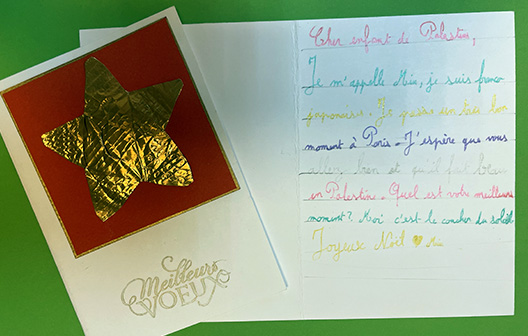 Meilleurs
VOEUX
Cher enfant de Palestine,
Je m'appelle Mia, je suis franco
japonaise. Je passe un très bon
moment à Paris. J'espère que vous
allez bien et qu'il fait beau
en Palestine. Quel est votre meilleure
moment? Moi c'est le coucher du soleil
Joyeux Noël ♥ Mia